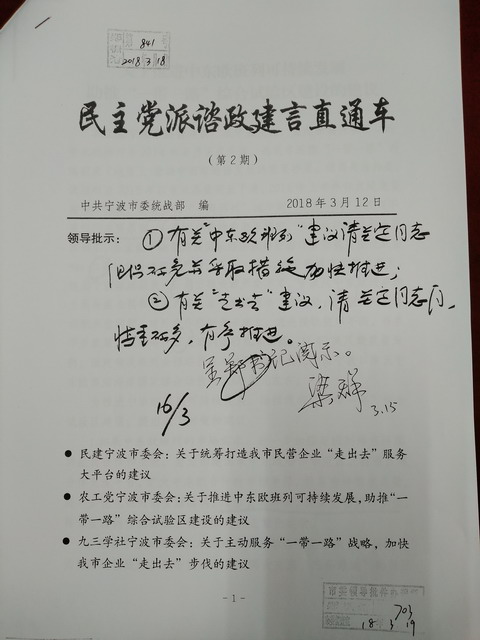 841
2018 3 18
民主党派谘政建言直通车
(第2期)
中共宁波市委统战部 编 2018年3月12日
领导批示: ①有关“中东欧班列”建议请 同志
研究并采取措施加快推进;
②有关 建议,请 同志
,有序推进。
呈 书记阅示。
梁群
3.15
16/3
● 民建宁波市委会:关于统筹打造我市民营企业“走出去”服务
大平台的建议
● 农工党宁波市委会:关于推进中东欧班列可持续发展,助推“一
带一路”综合试验区建设的建议
● 九三学社宁波市委会:关于主动服务“一带一路”战略,加快
我市企业“走出去”步伐的建议
- 1 -
703
18 3 19